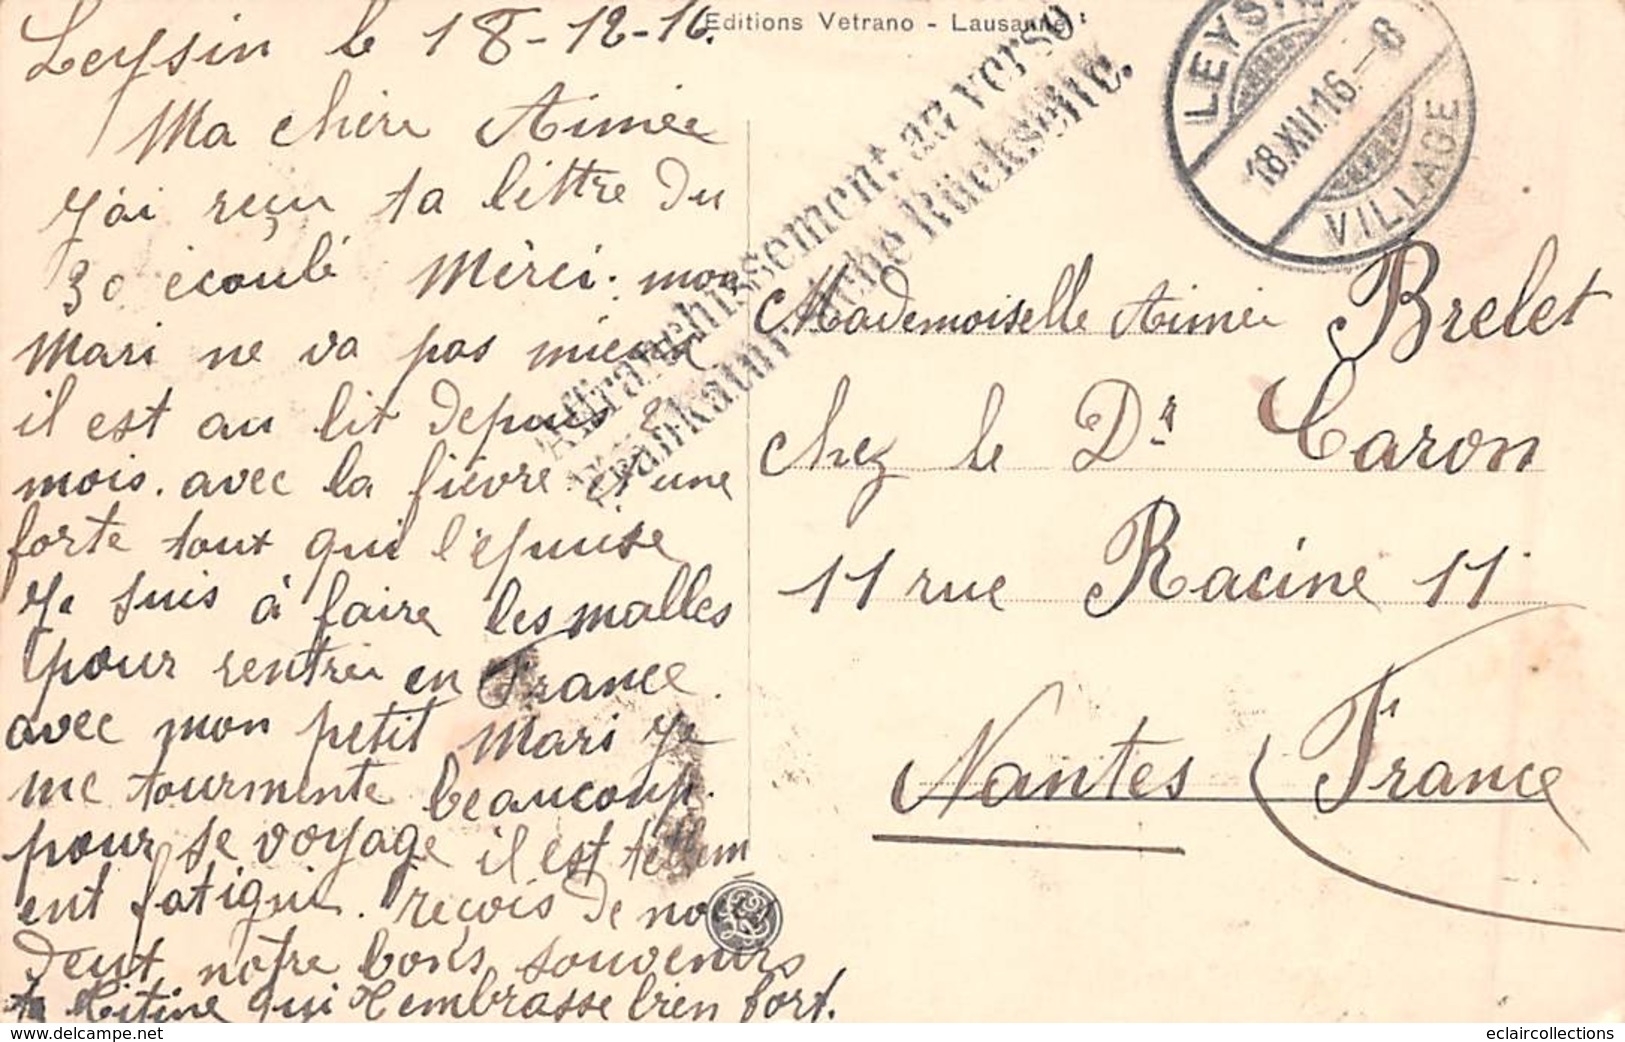 Leysin le 18-12-16.
Editions Vetrano - Lausanne.
Ma chère Aimée
j'ai reçu ta lettre du
30 écoulé Mérci. mon
Mari ne va pas mieux
il est au lit depuis 2
mois. avec la fièvre et une
forte toux qui l'épuise
Je suis à faire les malles
pour rentrer en France.
avec mon petit Mari je
me tourmente beaucoup.
pour se voyage il est tellem
ent fatigué. recois de nous
deux notre bons souvenirs
ta Titine qui t'embrasse bien fort.
Affranchissement au verso.
Frankatur siehe Rückseite.
LEYSIN
18.XII.16.-8
VILLAGE
Mademoiselle Aimée Brelet
chez le Dr Caron
11 rue Racine 11
Nantes France
delcampe.net
eclaircollections